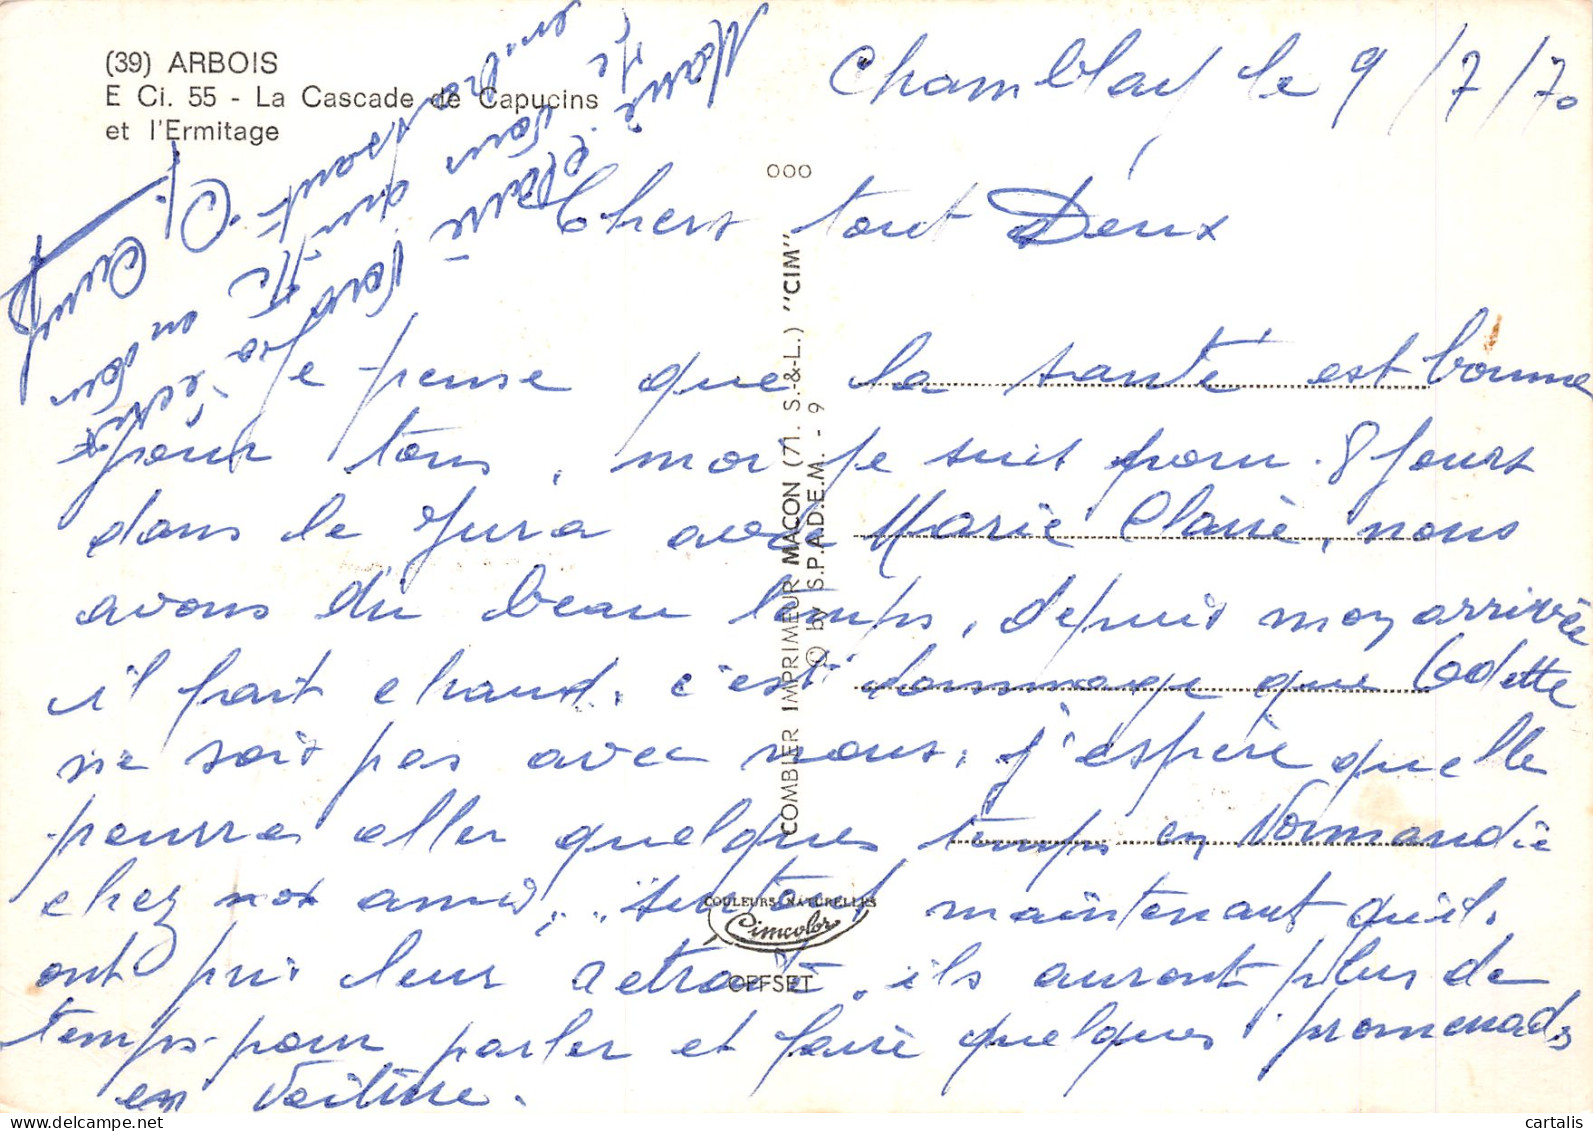 (39) ARBOIS
E Ci. 55 - La Cascade de Capucins
et l'Ermitage
Chamblay le 9/7/70
Chers tout Deux
Je pense que la santé est bonne
pour tous, moi je suis pour 8 jours
dans le Jura avec Marie Claire, nous
avons du beau temps, depuis mon arrivée
il fait chaud. c'est dommage que Odette
ne soit pas avec nous, j'espère quelle
pourra aller quelques temps en Normandie
chez nos amis, surtout maintenant qu'il
ont pris leur retraite, ils auront plus de
temps pour parler et faire quelques promenades
en voiture.
Marie Claire
000
COMBIER IMPRIMEUR MACON (71. S.-&-L.) "CIM"
© by S.P.A.D.E.M. - 9
COULEURS NATURELLES
Cimcolor
OFFSET
cartalis
delcampe.net